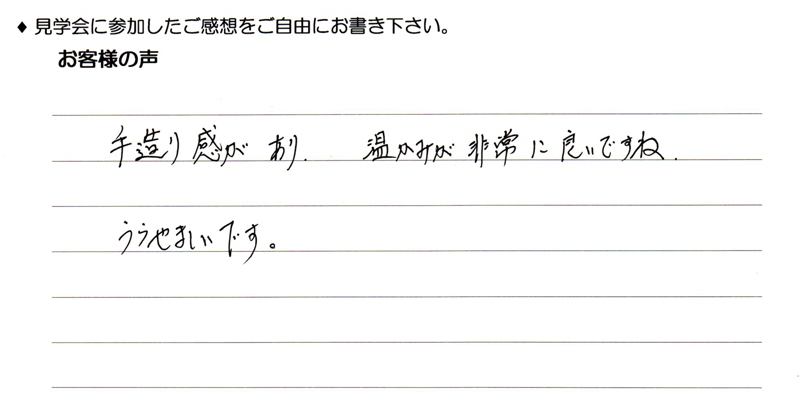 ♦ 見学会に参加したご感想をご自由にお書き下さい。
お客様の声
手造り感があり. 温かみが非常に良いですね.
うらやましいです。